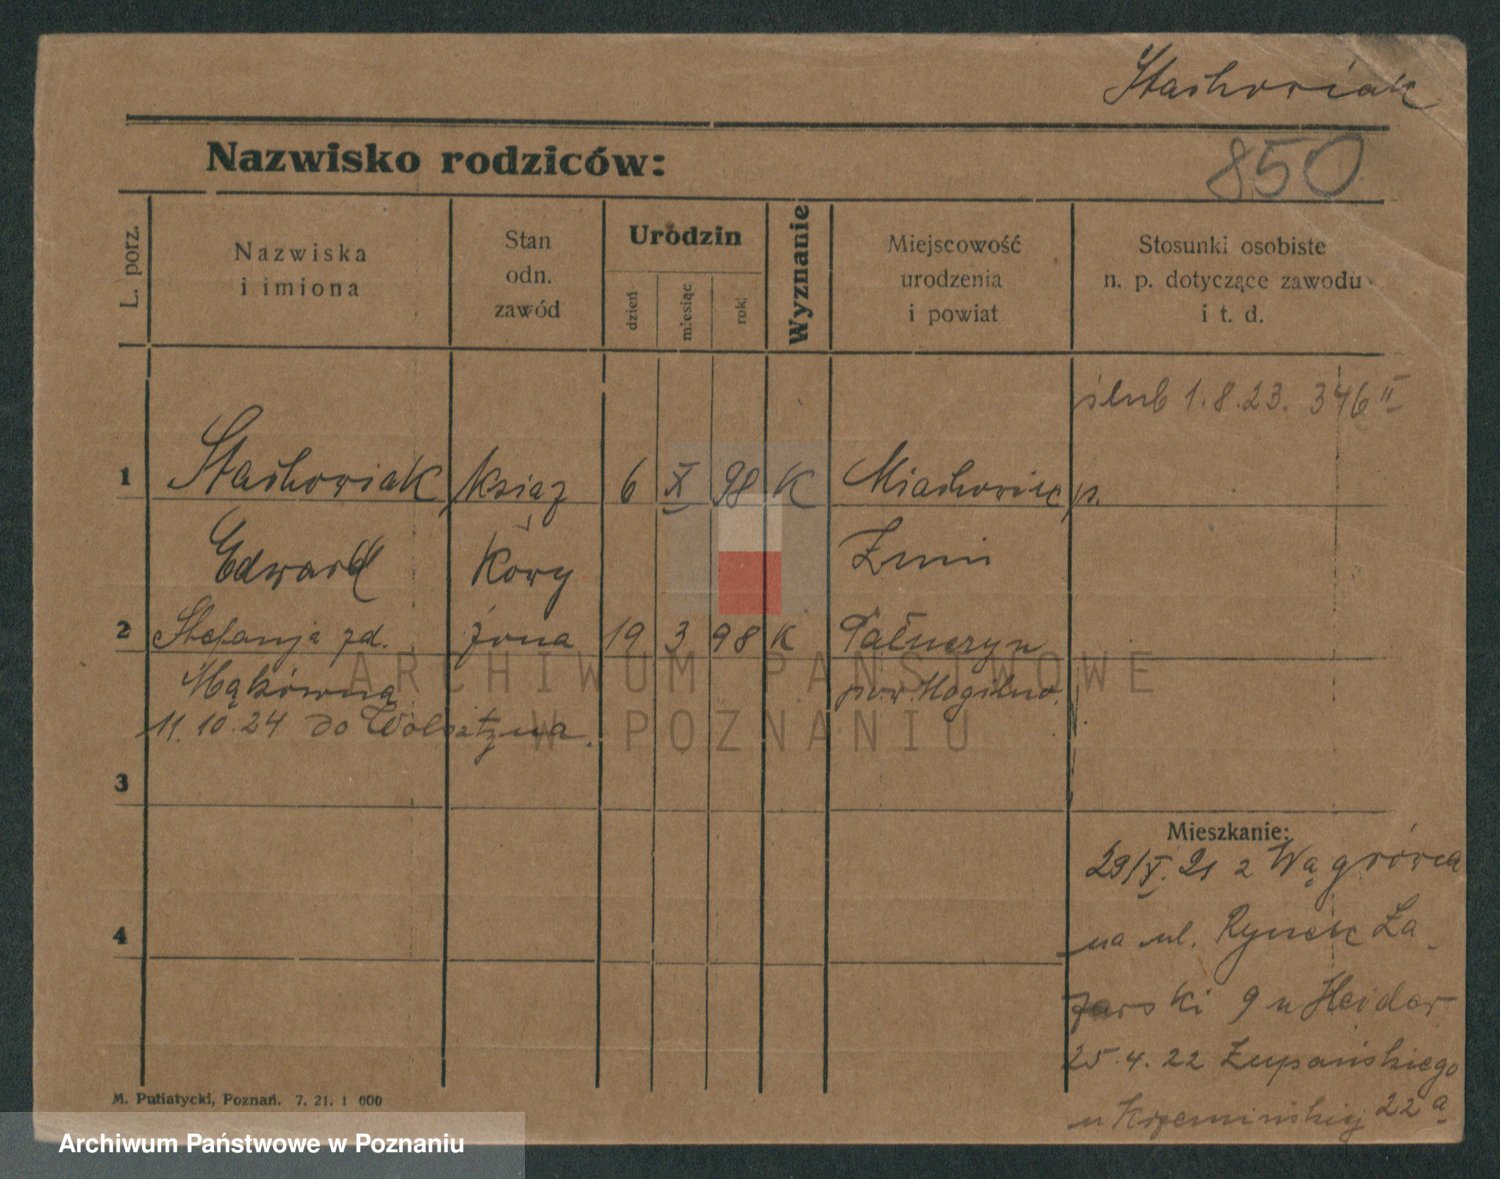 Stachowiak
Nazwisko rodziców:
850
L. porz.
Nazwiska
i imiona
Stan
odn.
zawód
Urodzin
dzień
miesiąc
rok
Wyznanie
Miejscowość
urodzenia
i powiat
Stosunki osobiste
n. p. dotyczące zawodu
i t. d.
ślub 1.8.23. 346 II
1 Stachowiak książ 6 X 98 K p.
Edward kowy Żnin
2 Stefanja zd. żona 19 3 98 K
Mąkówną pow. Mogilno.
11.10.24 do Wolsztyna.
3
Mieszkanie:
29/V. 21 z Wągrówca
4
na ul. Rynek Ła-
zarski 9 u Heider
25.4.22 Żupańskiego
u Krzemińskiej 22a
M. Putiatycki, Poznań. 7. 21. 1 000
ARCHIWUM PAŃSTWOWE
W POZNANIU
Archiwum Państwowe w Poznaniu